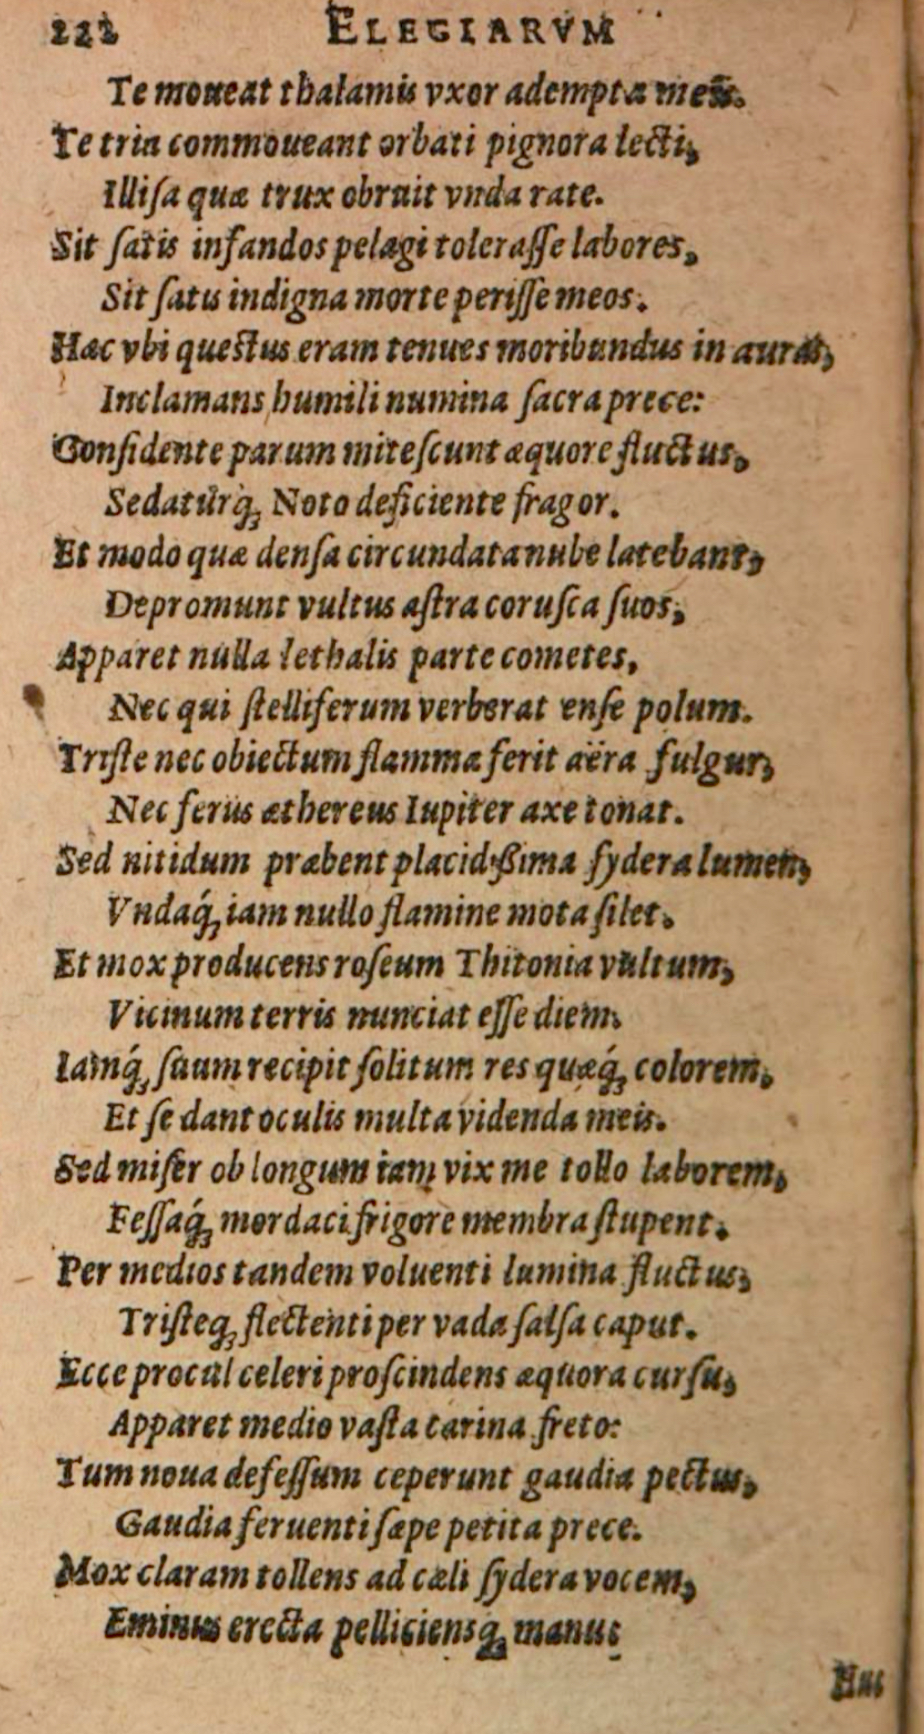 222 ELEGIARVM
Te moueat thalamis vxor adempta meis.
Te tria commoueant orbati pignora lecti,
Illisa quæ trux obruit vnda rate.
Sit ſatis infandos pelagi toleraſſe labores,
Sit ſatis indigna morte periſſe meos.
Hæc vbi queſtus eram tenues moribundus in auras,
Inclamans humili numina ſacra prece:
Conſidente parum miteſcunt æquore fluctus,
Sedatúrq́ꝫ Noto deficiente fragor.
Et modo quæ denſa circundata nube latebant,
Depromunt vultus aſtra coruſca ſuos,
Apparet nulla lethalis parte cometes,
Nec qui ſtelliferum verberat enſe polum.
Triſte nec obiectum flamma ferit aëra fulgur,
Nec ferus æthereus Iupiter axe tonat.
Sed nitidum præbent placidißima ſydera lumen,
Vndaq́ꝫ iam nullo flamine mota ſilet.
Et mox producens roſeum Thitonia vultum,
Vicinum terris nunciat eſſe diem.
Iamq́ꝫ ſuum recipit ſolitum res quæq́ꝫ colorem,
Et ſe dant oculis multa videnda meis.
Sed miſer ob longum iam vix me tollo laborem,
Feſſaq́ꝫ mordaci frigore membra ſtupent.
Per medios tandem voluenti lumina fluctus,
Triſteqꝫ flectenti per vada ſalſa caput.
Ecce procul celeri proſcindens æquora curſu,
Apparet medio vaſta carina freto:
Tum noua defeſſum ceperunt gaudia pectus,
Gaudia feruenti ſæpe petita prece.
Mox claram tollens ad cæli ſydera vocem,
Eminus erecta pelliciensqꝫ manus
Huc